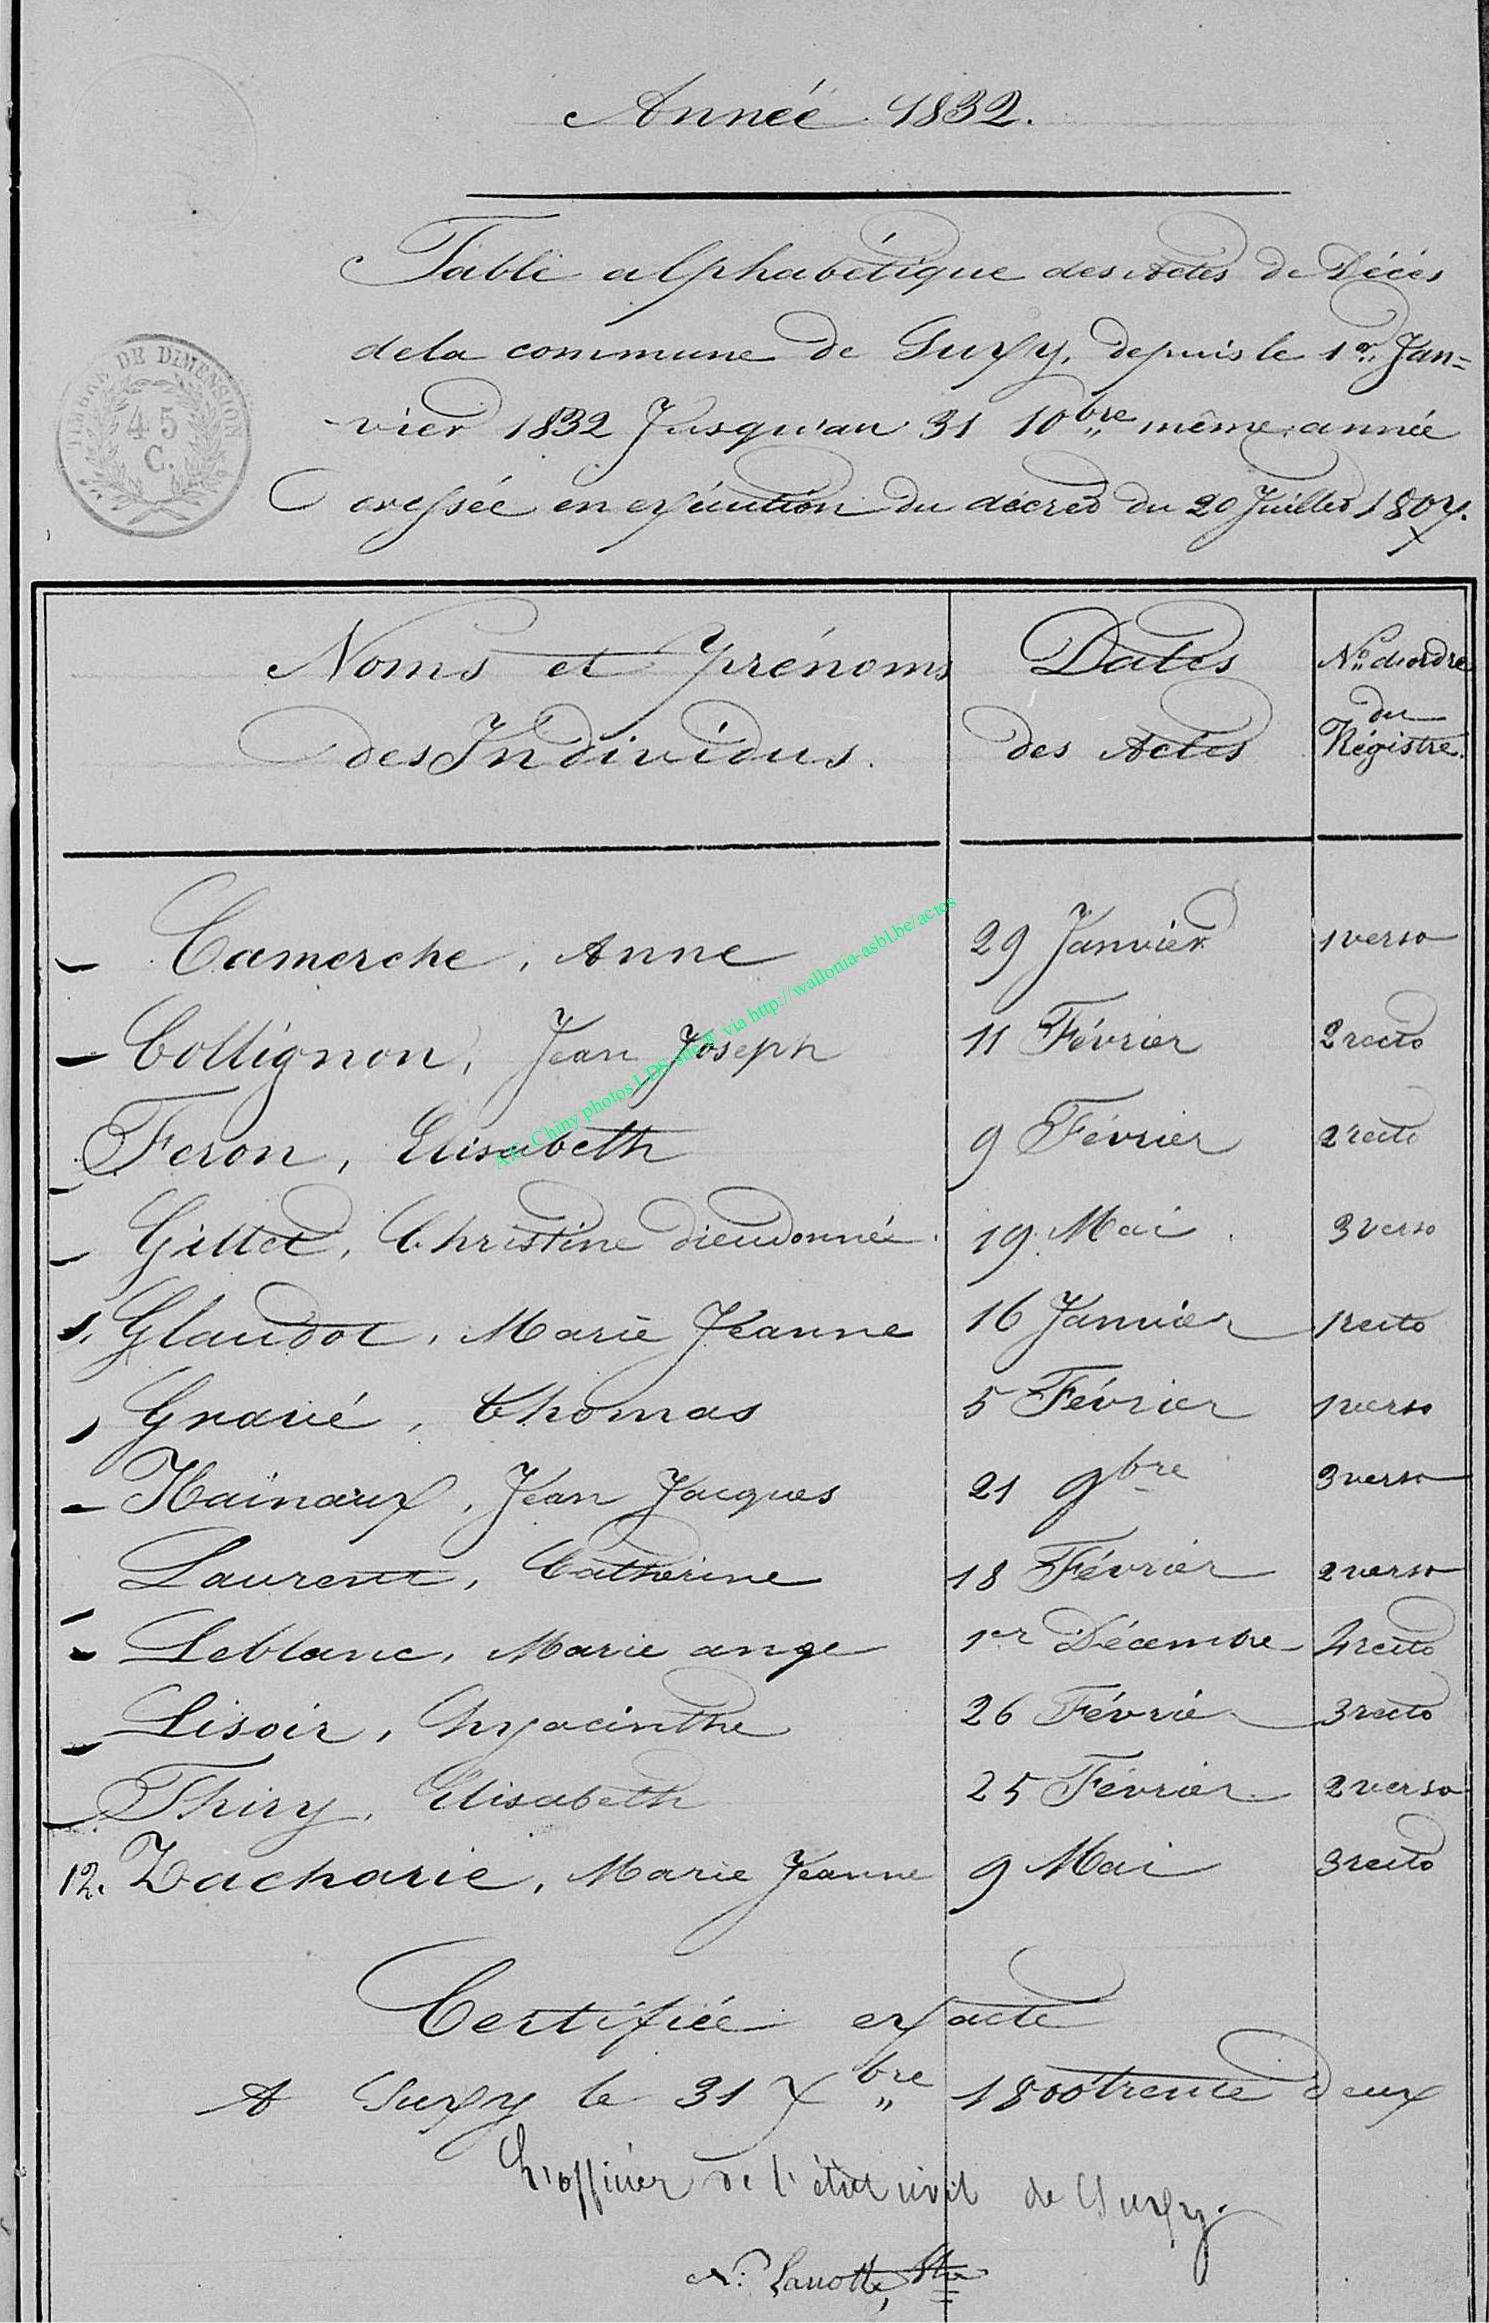 Année 1832.
Table alphabétique des Actes de Décès
de la commune de Suxy, depuis le 1er Jan=
vier 1832 Jusqu'au 31 10bre même année
Dressée en exécution du décret du 20 Juillet 1807.
TIMBRE DE DIMENSION
45
C.
Noms et prénoms
des Individus.
Dates
des Actes
No d'ordre
du
Régistre.
Camerche, Anne 29 Janvier 1 verso
Collignon, Jean Joseph 11 Février 2 recto
Feron, Elisabeth 9 Février 2 recto
Gillet, Christine dieudonnée. 19 Mai. 3 verso
Glaudot, Marie Jeanne 16 Janvier 1 recto
Gravié, Thomas 5 Février 1 verso
Hainaux, Jean Jacques 21 9bre 3 verso
Laurent, Catherine 18 Février 2 verso
Leblanc, Marie ange 1er Décembre 4 recto
Lisoir, hyacinthe 26 Février 3 recto
Thiry, Elisabeth 25 Février 2 verso
12. Zacharie, Marie Jeanne 9 Mai 3 recto
Certifiée exacte
A Suxy le 31 Xbre 1800 trente deux
L'officier de l'état civil de Suxy.
Chiny photos LDS via http://wallonia-asbl.be/actes